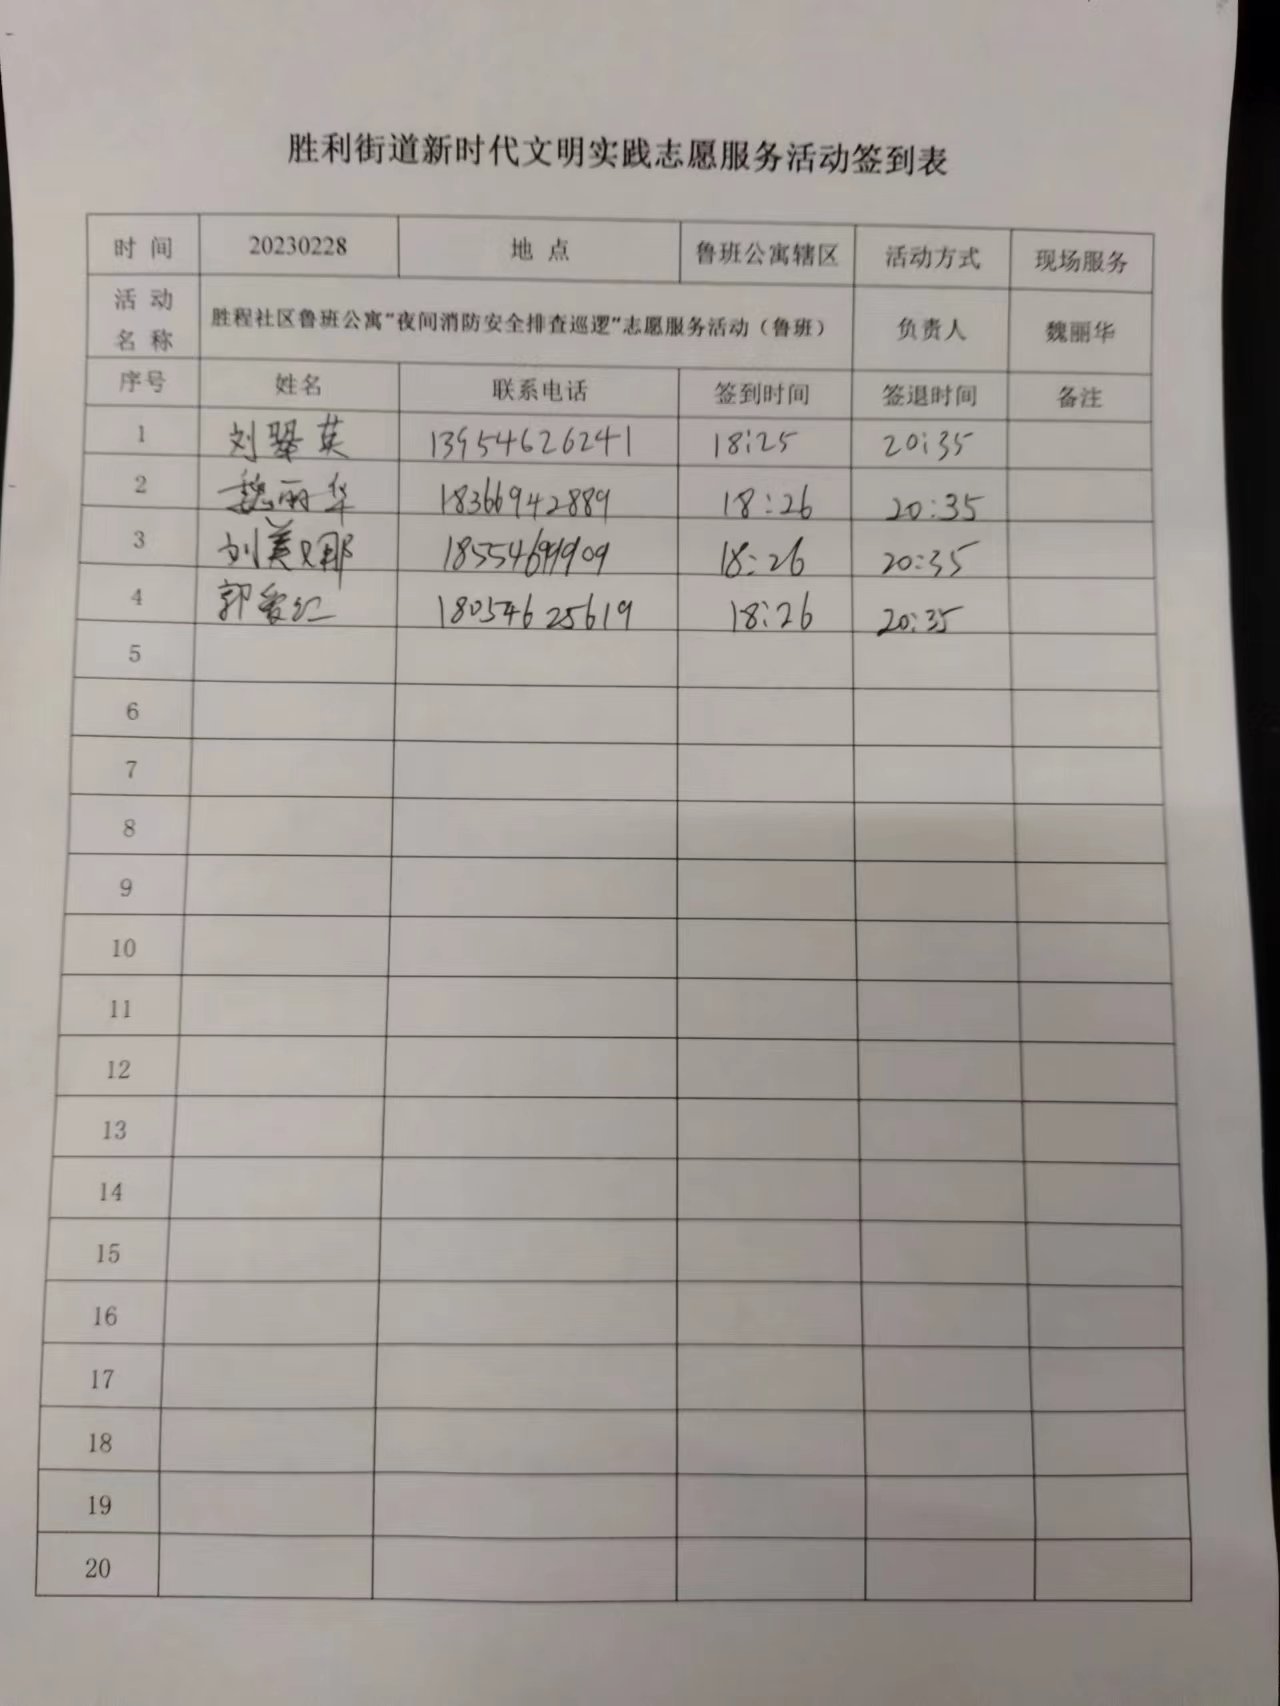 胜利街道新时代文明实践志愿服务活动签到表
时 间 20230228 地 点 鲁班公寓辖区 活动方式 现场服务
活 动 名 称 胜程社区鲁班公寓"夜间消防安全排查巡逻"志愿服务活动（鲁班） 负责人 魏丽华
序号 姓名 联系电话 签到时间 签退时间 备注
1 刘翠英 13954626241 18:25 20:35
2 魏丽华 18366942889 18:26 20:35
3 刘美娜 18:26 20:35
4 郭爱红 18054625619 18:26 20:35
5
6
7
8
9
10
11
12
13
14
15
16
17
18
19
20